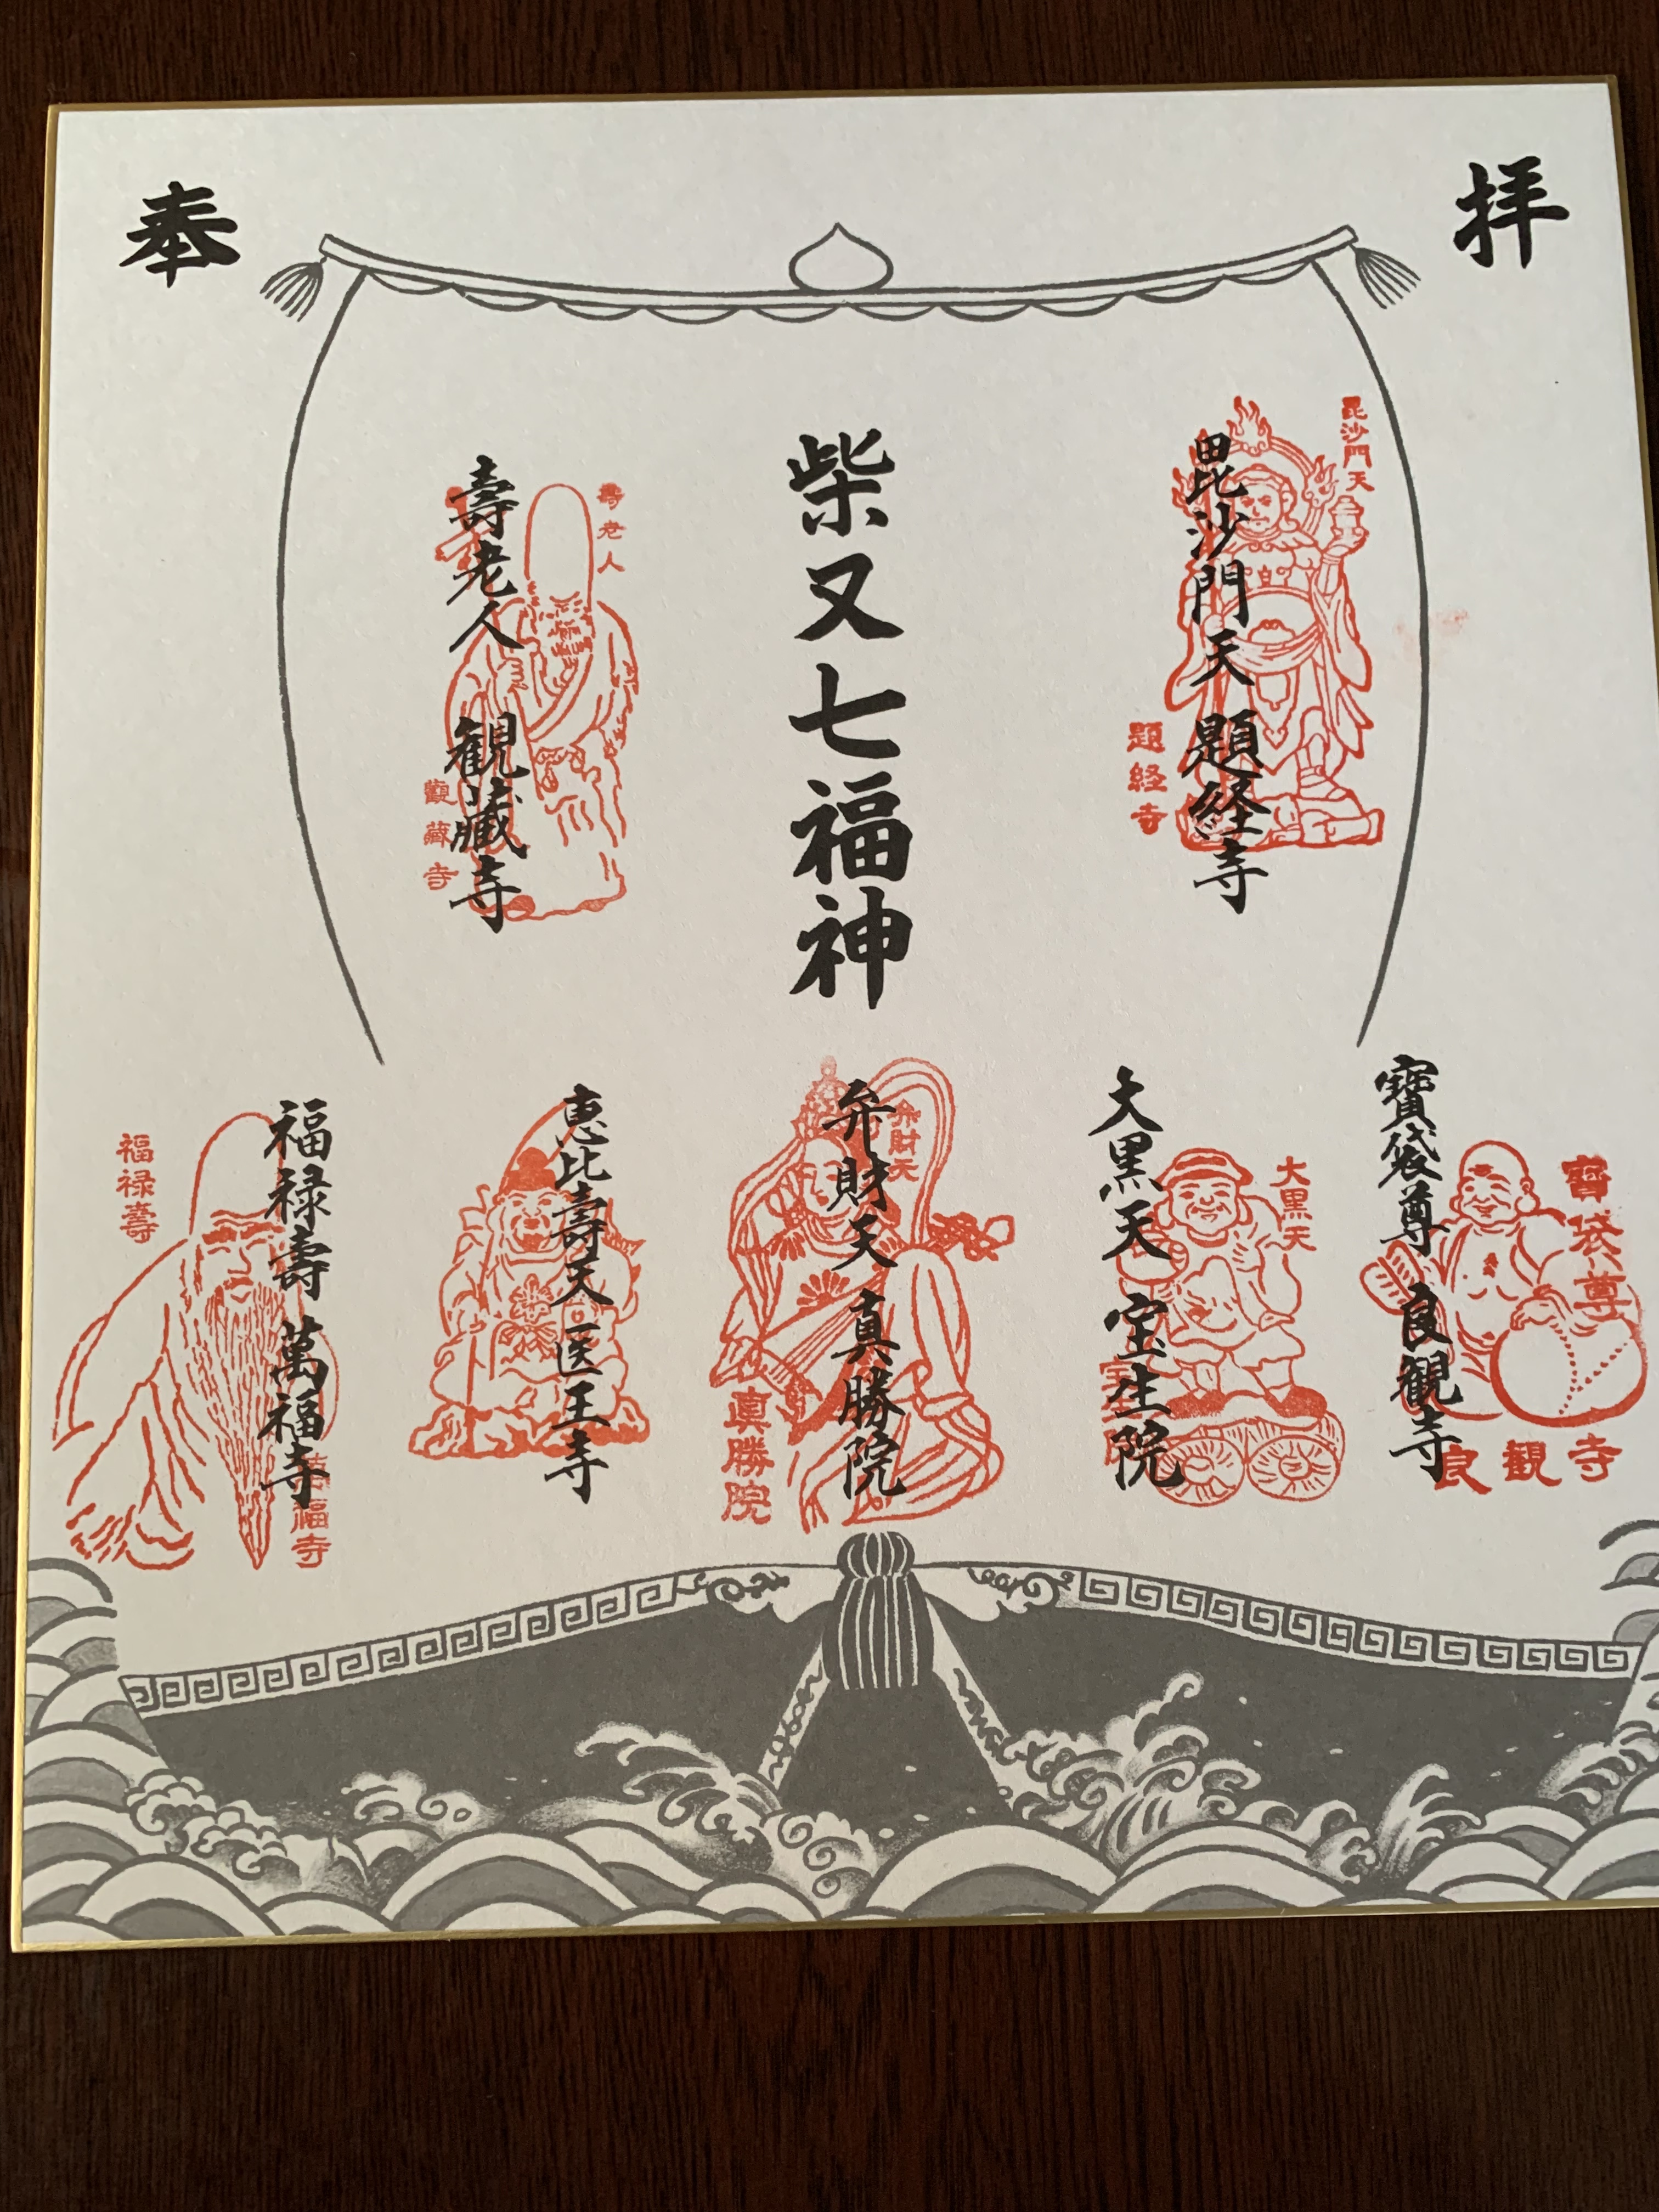 奉
拝
柴又七福神
毘沙門天 題経寺
毘沙門天
題経寺
壽老人 観蔵寺
壽老人
觀蔵寺
寶袋尊 良観寺
寶袋尊
良観寺
大黒天 宝生院
大黒天
弁財天 真勝院
弁財天
真勝院
恵比壽天 医王寺
福禄壽 萬福寺
福禄壽
萬福寺